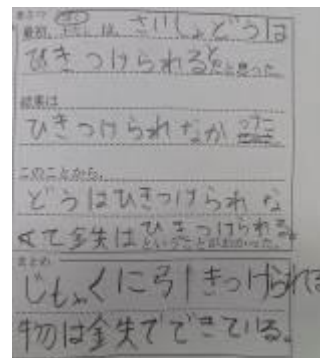 最初、は さいしょどうは
ひきつけられると思った
結果は
ひきつけられなかった
このことから、
どうはひきつけられな
くて金失はひきつけられる
ということがわかった。
まとめ
じしゃくに弓|きつけられる
物は金失でできている。